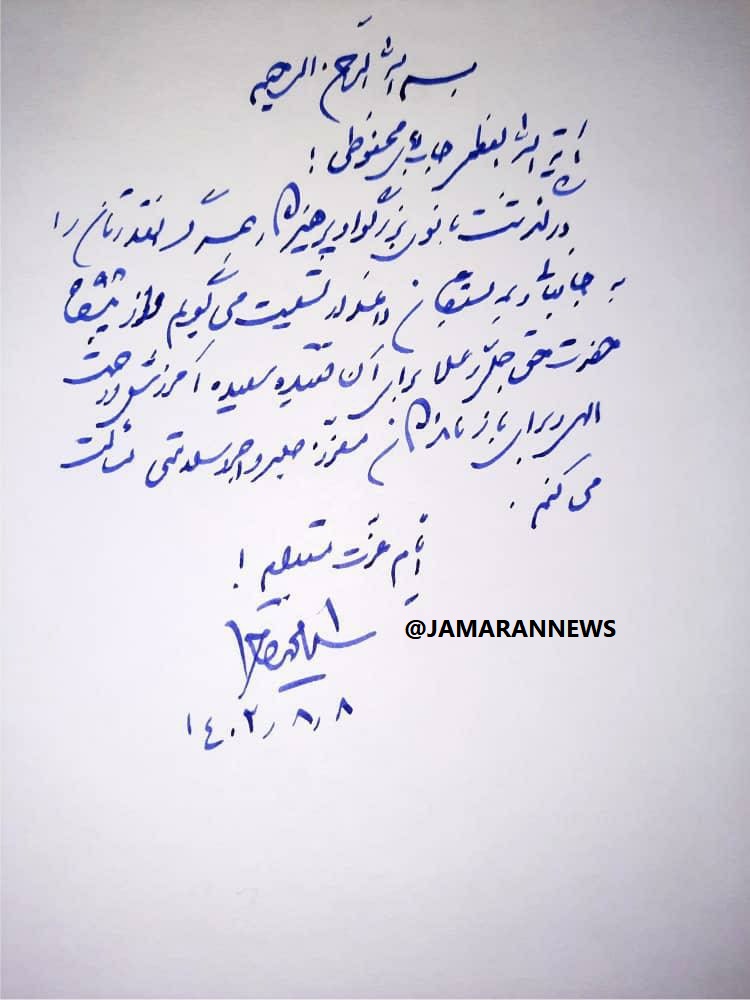 بسم الله الرحمن الرحیم
آیة الله العظمی جناب آقای محفوظی!
درگذشت بانوی بزرگوار و پرهیزگار، همسر گرانقدرتان را
به جنابعالی و به بستگان داغدار تسلیت می‌گویم و از پیشگاه
حضرت حق جلّ و علا برای آن فقیده سعیده آمرزش و رحمت
الهی و برای بازماندگان معزّز، صبر و اجر و سلامتی مسألت
می کنم.
ایّام عزّت مستدام!
@JAMARANNEWS
۱۴۰۲/۸/۸